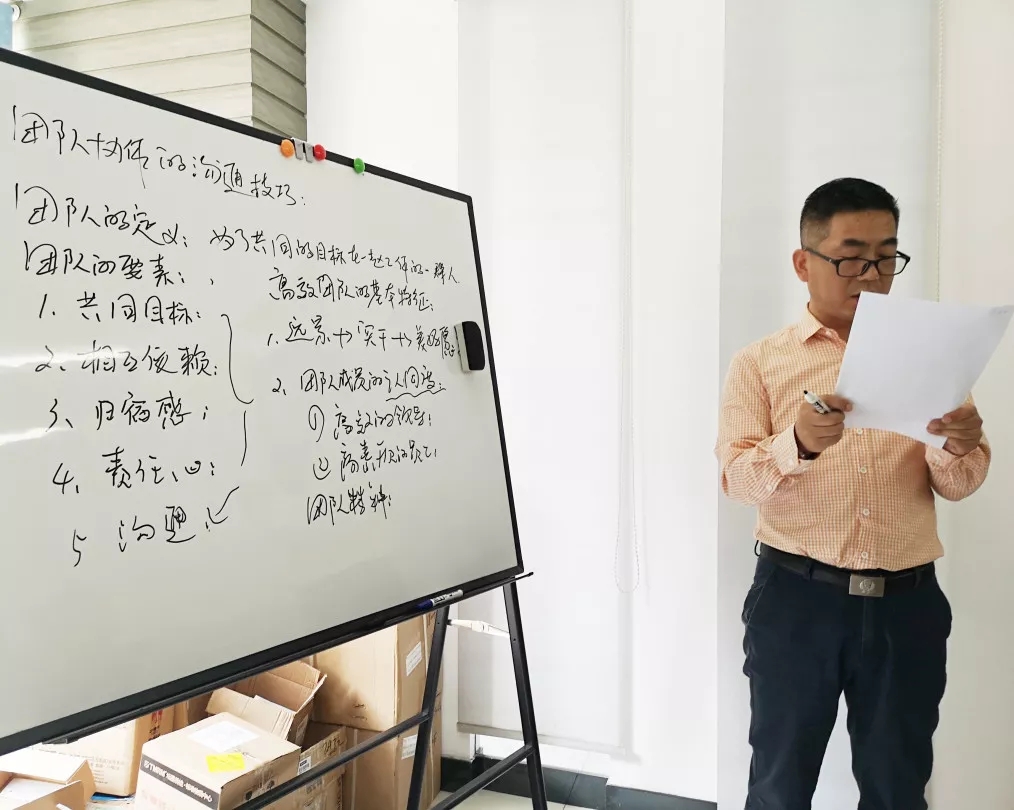 团队协作的沟通技巧:
团队的定义: 为了共同的目标在一起工作的一群人
团队的要素:
1. 共同目标:
2. 相互依赖:
3、归宿感;
4、责任心:
5 沟通:
高效团队的基本特征:
1. 远景→实干→美好
2、团队成员的认同
① 高效的领导:
② 高素质的员工,
团队精神: